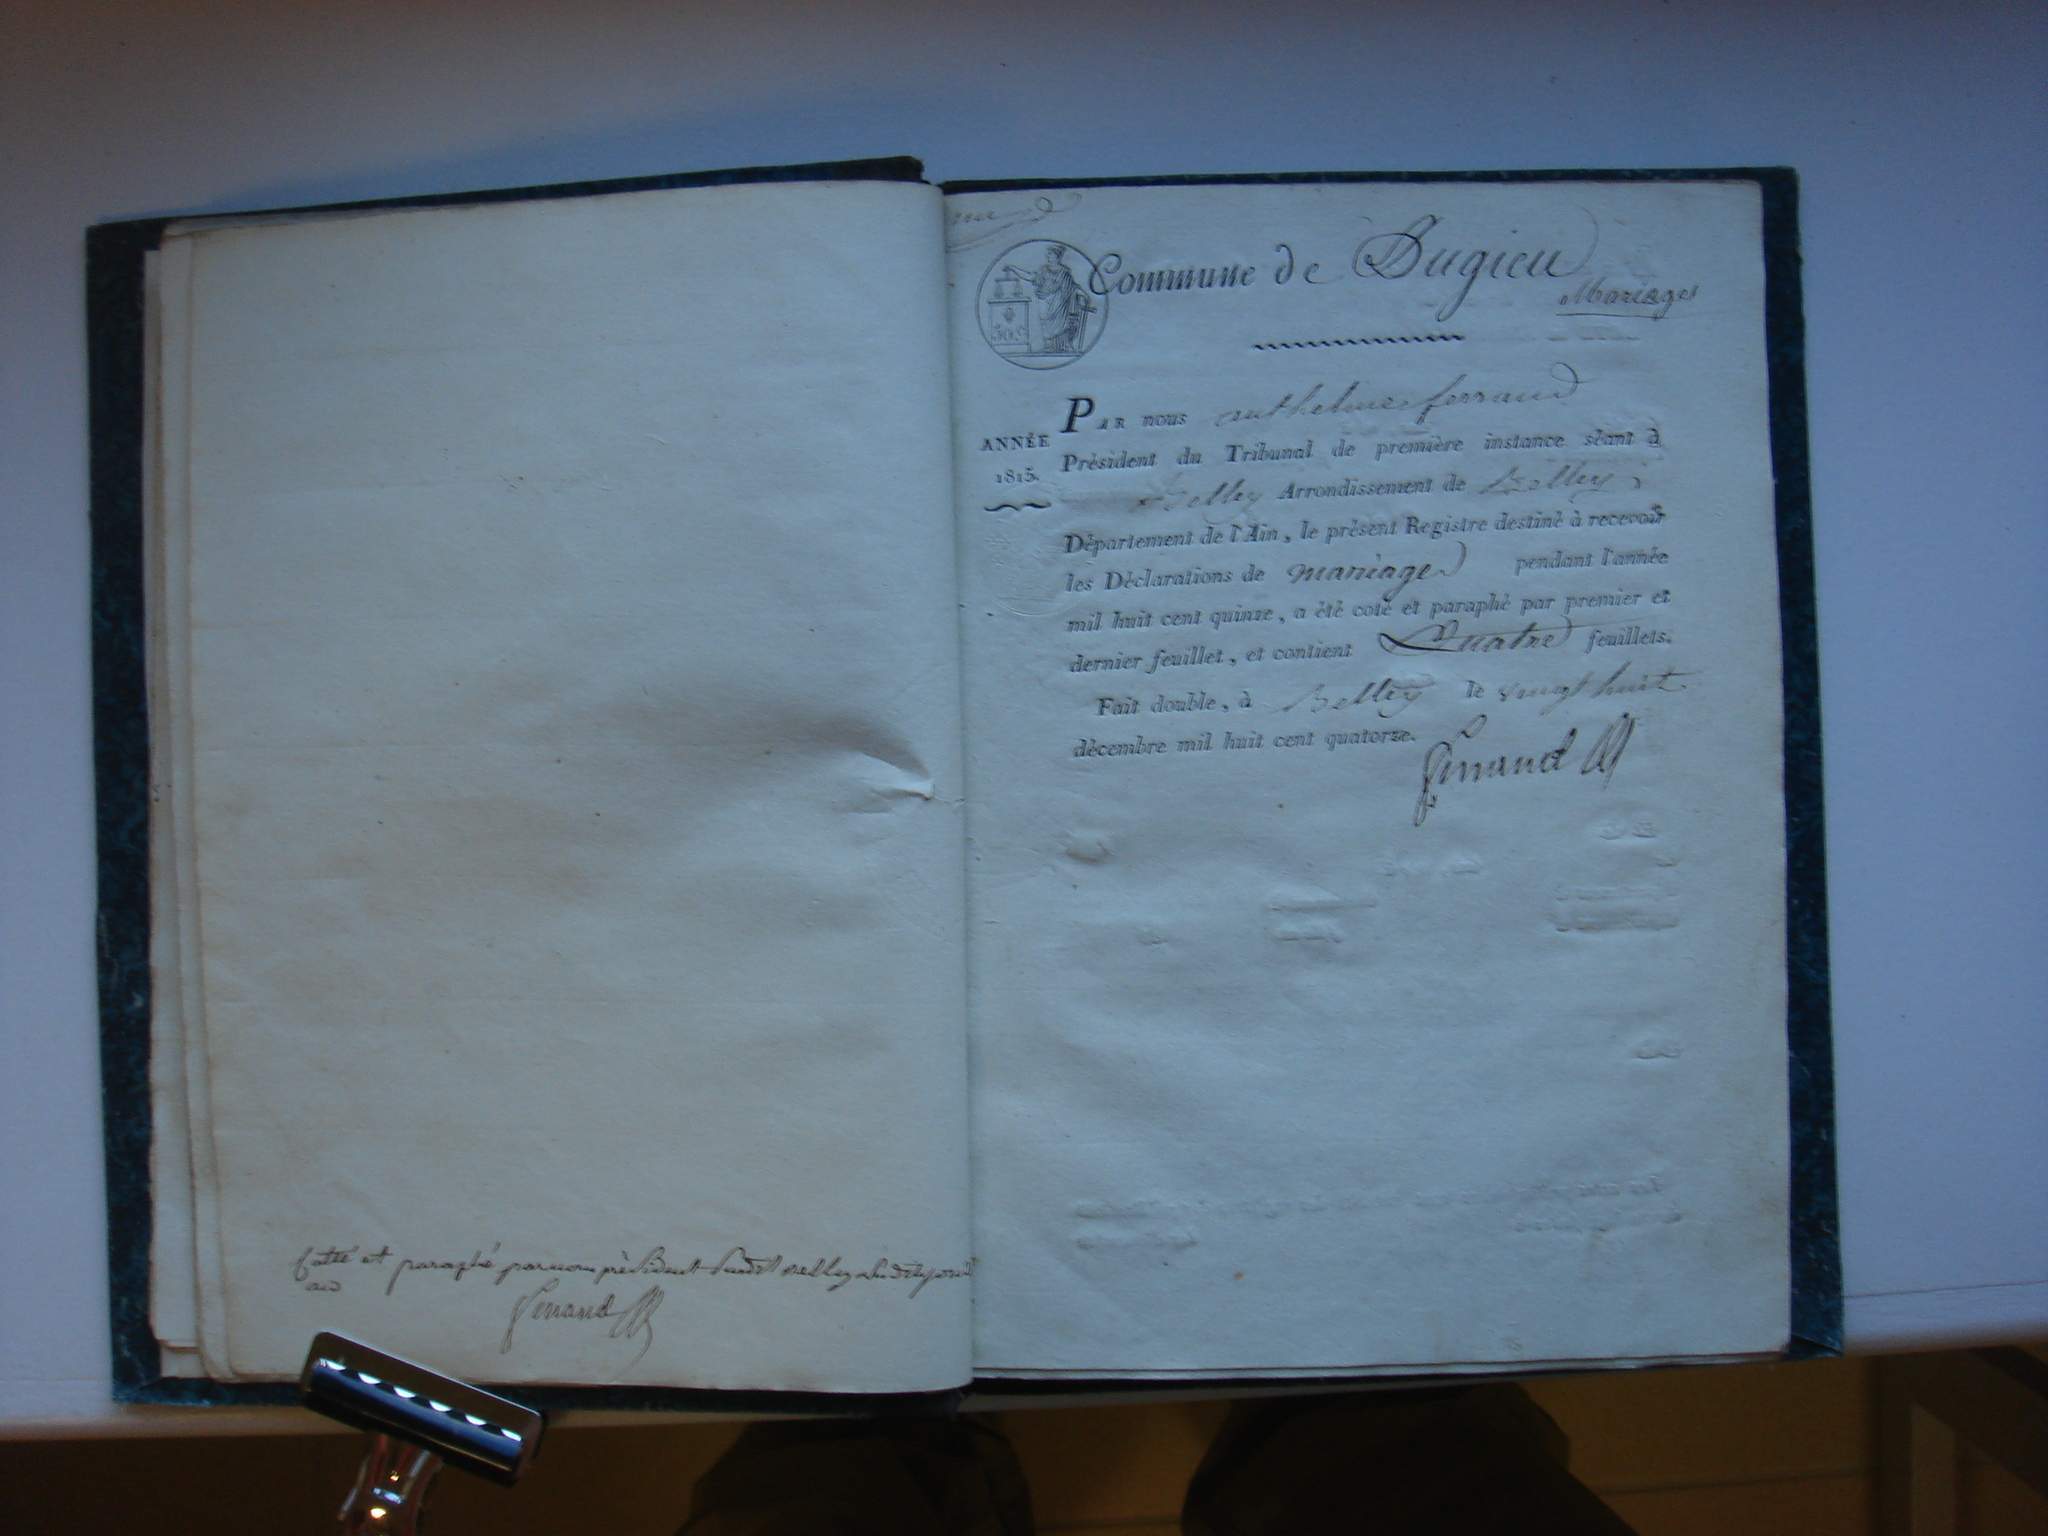 Cotté et paraphé par nous président
Ferrand
Commune de Sugieu
Mariages
50 C.
ANNÉE
1815.
PAR nous anthelme ferrand
Président du Tribunal de première instance séant à
Belley Arrondissement de Belley,
Département de l'Ain, le présent Registre destiné à recevoir
les Déclarations de mariage pendant l'année
mil huit cent quinze, a été coté et paraphé par premier et
dernier feuillet, et contient Quatre feuillets.
Fait double, à Belley le vingt huit
décembre mil huit cent quatorze.
Ferrand